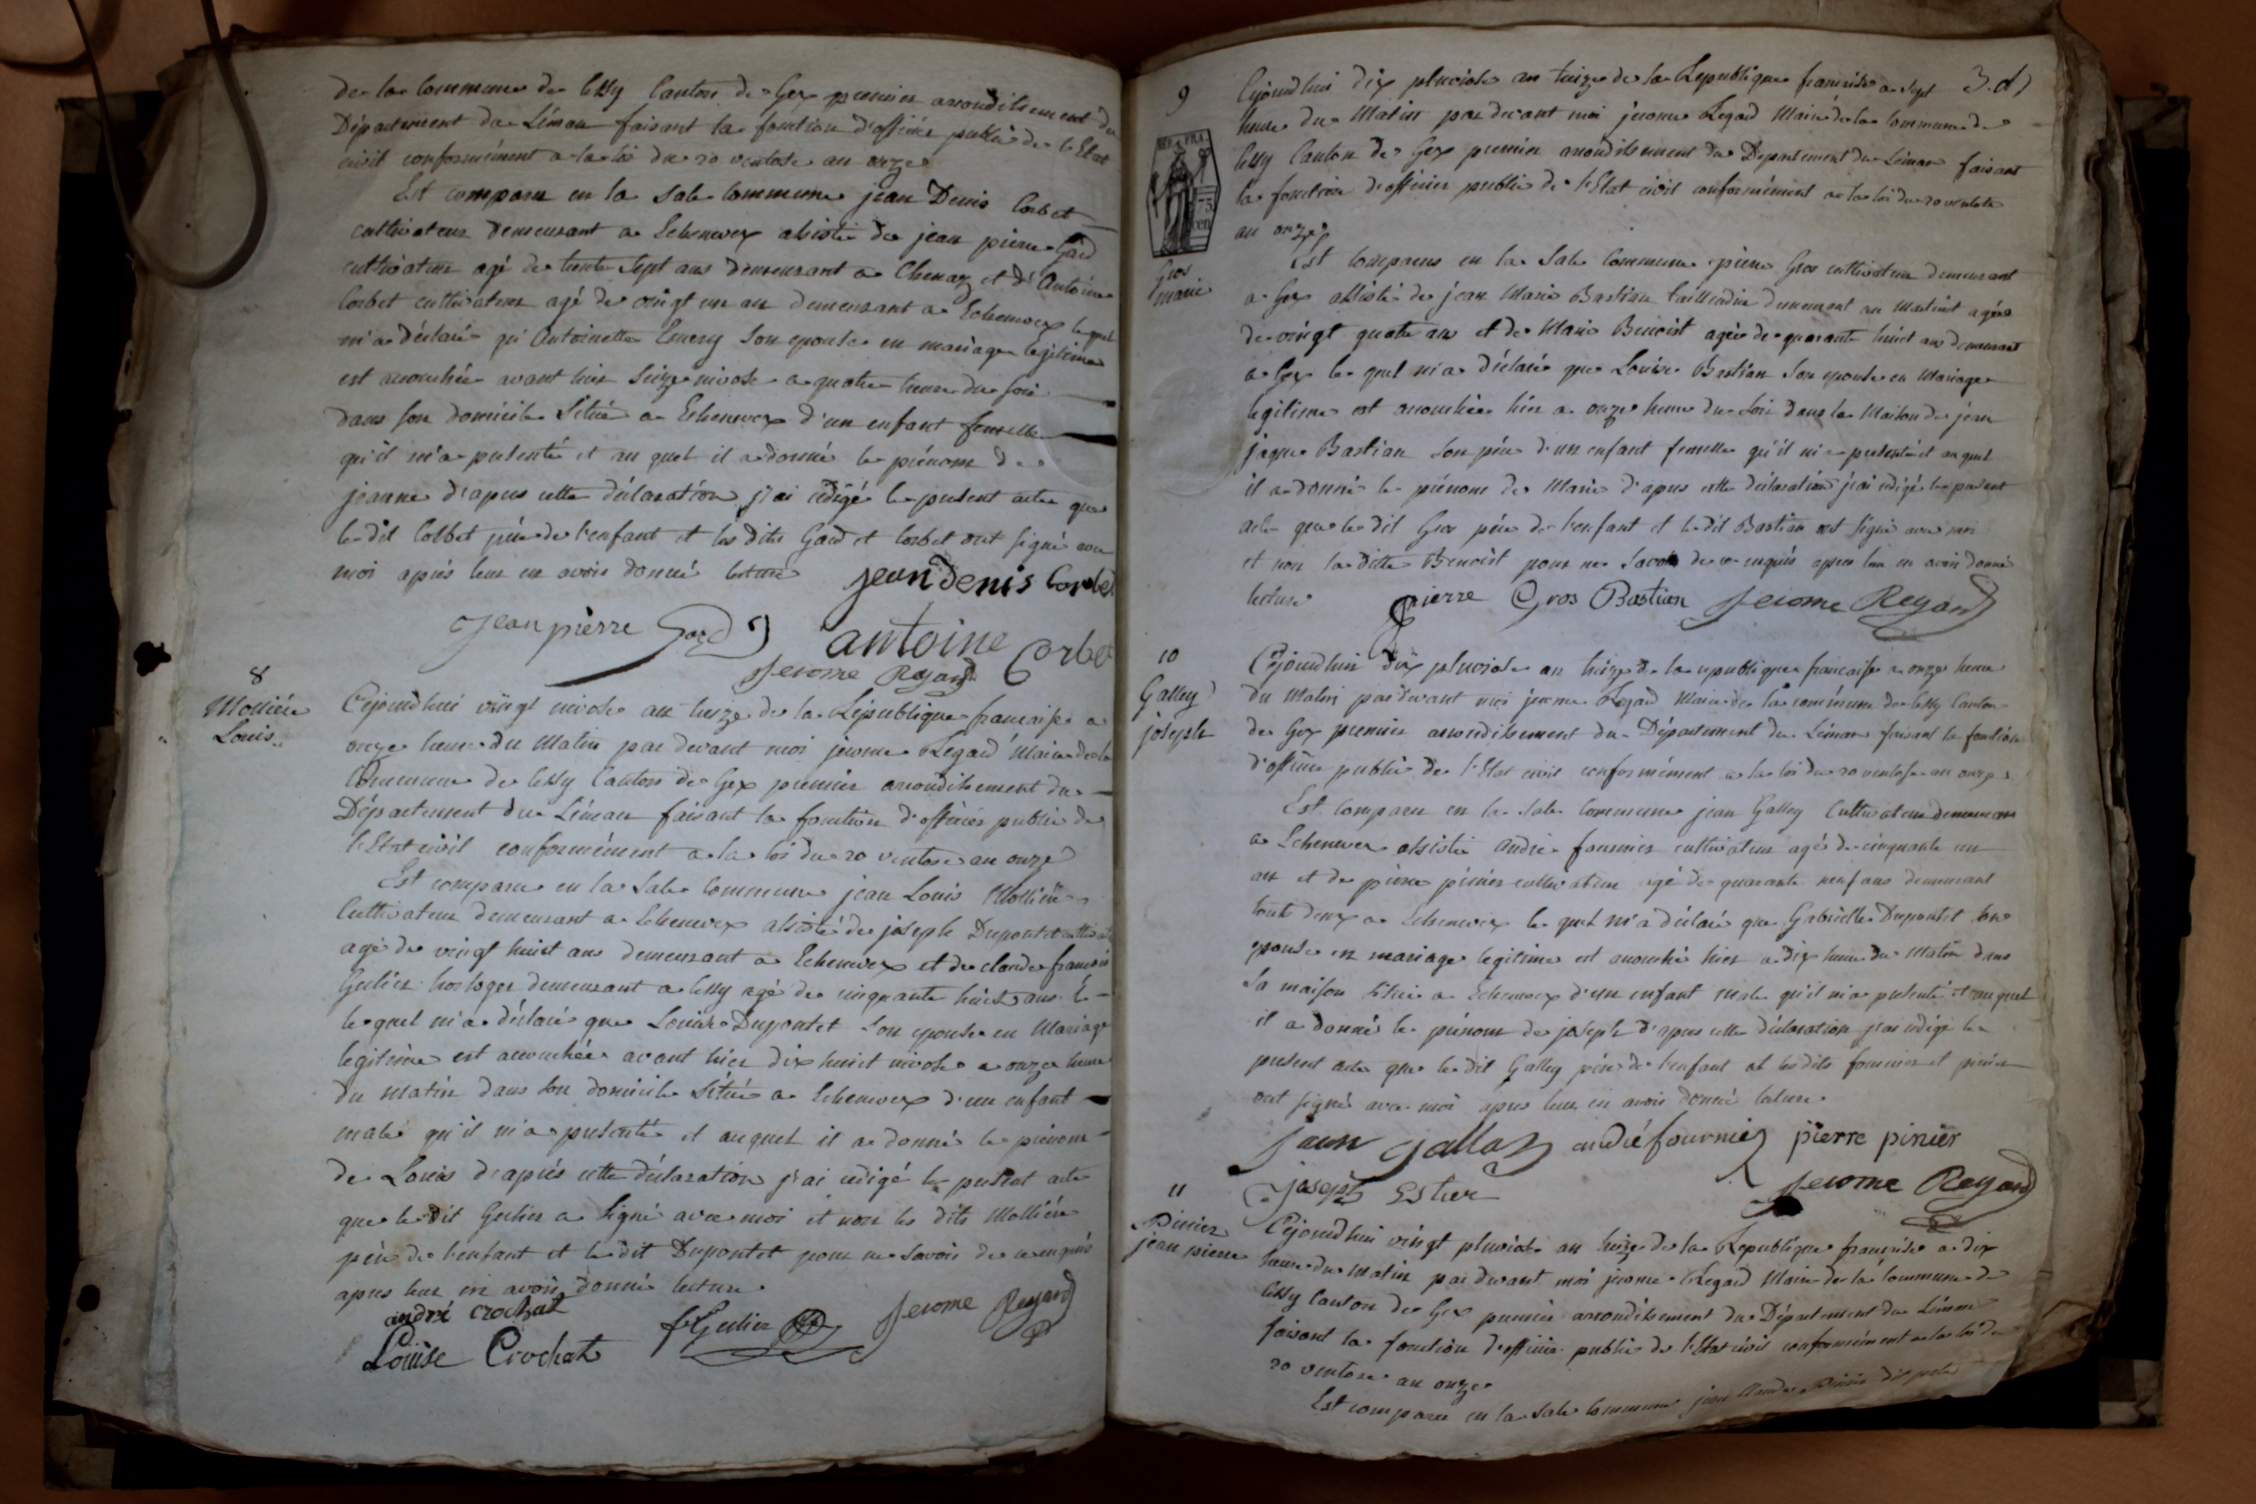 de la Commune de Cessy Canton de Gex premier arrondissement du
Département du Léman faisant la fonction d'officier public de l'Etat
civil conformément a la loi du 20 ventose an onze
Est comparu en la Sale Commune jean Denis Corbet
cultivateur demeurant a Echenevex assisté de jean pierre Gard
cultivateur agé de trente Sept ans demeurant a Chenaz et d'Antoine
Corbet cultivateur agé de vingt un an demeurant a Echenevex le quel
m'a déclaré qu'Antoinette Emery Son epouse en mariage legitime
est accouchée avant hier Seize nivose a quatre heure du soir
dans son domicile Situé a Echenevex d'un enfant femelle
qu'il m'a présenté et au quel il a donné le prénom de
jeanne d'après cette déclaration j'ai rédigé le présent acte que
le dit Corbet père de l'enfant et les dits Gard et Corbet ont signé avec
moi après leur en avoir donné lecture jean denis Corbet
jean pierre Gard antoine Corbet
Jerome Regard
8
Mollier
Louis
Cejourdhui vingt nivose an treize de la République francaise a
onze heure du Matin par devant moi jerome Regard Maire de la
Commune de Cessy Canton de Gex premier arrondissement du
Département du Léman faisant la fonction d'officier public de
l'Etat civil conformément a la loi du 20 ventose an onze
Est comparu en la Sale Commune jean Louis Mollier
Cultivateur demeurant a Echenevex assisté de joseph Dupontet
agé de vingt huit ans demeurant a Echenevex et de claude francois
Gulier horloger demeurant a Cessy agé de cinquante huit ans
le quel m'a déclaré que Louise Dupontet Son epouse en Mariage
legitime est accouchée avant hier dix huit nivose a onze heure
du Matin dans son domicile Situé a Echenevex d'un enfant
male qu'il m'a présenté et auquel il a donné le prénom
de Louis d'après cette déclaration j'ai rédigé le présent acte
que le dit Gulier a Signé avec moi et non les dits Mollier
père de l'enfant et le dit Dupontet pour ne Savoir de ce enquis
apres leur en avoir donné lecture
andré crochat
Louise Crochat f Gulier Jerome Regard
9
3.d
REP FRA
75
cen
Gros
marie
Cejourdhui dix pluviose an treize de la Republique francaise a sept
heure du Matin par devant moi jerome Regard Maire de la Commune de
Cessy Canton de Gex premier arrondissement du Departement du Léman faisant
la fonction d'officier public de l'Etat civil conformément a la loi du 20 ventose
an onze
Est comparu en la Sale Commune pierre Gros cultivateur demeurant
a Gex assisté de jean Marie Bastian taillandier demeurant au Martinet agée
de vingt quatre ans et de Marie Benoist agée de quarante huit ans demeurant
a Gex le quel m'a déclaré que Louise Bastian Son epouse en Mariage
legitime est accouchée hier a onze heure du Soir dans la Maison de jean
jaque Bastian Son père d'un enfant femelle qu'il m'a présenté et au quel
il a donné le prénom de Marie d'apres cette déclaration j'ai rédigé le présent
acte que le dit Gros père de l'enfant et le dit Bastian ont signé avec moi
et non la ditte Benoist pour ne Savoir de ce enquis apres leur en avoir donné
lecture pierre Gros Bastian Jerome Regard
10
Galley
joseph
Cejourdhui dix pluviose an treize de la republique francaise a onze heure
du Matin par devant moi jerome Regard Maire de la commune de Cessy Canton
de Gex premier arrondissement du Département du Léman faisant la fonction
d'officier public de l'Etat civil conformément a la loi du 20 ventose an onze
Est comparu en la Sale Commune jean Galley Cultivateur demeurant
a Echenevex assisté andré fournier cultivateur agé de cinquante un
an et de pierre pinier cultivateur agé de quarante neuf ans demeurant
tout deux a Echenevex le quel m'a déclaré que Gabrielle Dupontet son
epouse en mariage legitime est accouché hier a dix heure du Matin dans
Sa maison Située a Echenevex d'un enfant male qu'il m'a présenté et au quel
il a donné le prénom de joseph d'apres cette déclaration j'ai rédigé le
présent acte que le dit Galley père de l'enfant et les dits fournier et pinier
ont signé avec moi apres leur en avoir donné lecture
jean gallay andré fournier pierre pinier
joseph Estier Jerome Regard
11
Pinier
jean pierre
Cejourdhui vingt pluviose an treize de la République francaise a dix
heure du Matin par devant moi jerome Regard Maire de la Commune de
Cessy Canton de Gex premier arrondissement du Département du Léman
faisant la fonction d'officier public de l'Etat civil conformément a la loi du
20 ventose an onze
Est comparu en la Sale Commune jean Pinier